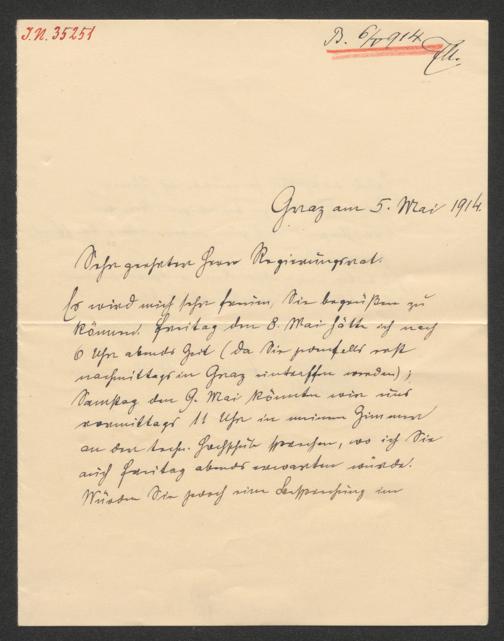 J.N. 35251
B. 6/V 914
Graz am 5. Mai 1914.
Sehr geehrter Herr Regierungsrat.
Es wird mich sehr freuen, Sie begrüßen zu
können. Freitag den 8. Mai hätte ich nach
6 Uhr abends Zeit (da Sie jedenfalls erst
nachmittags in Graz eintreffen werden);
Samstag den 9. Mai könnten wir uns
vormittags 11 Uhr in meinem Zimmer
an der techn. Hochschule sprechen, wo ich Sie
auch Freitag abends erwarten würde.
Würden Sie jedoch eine Besprechung im